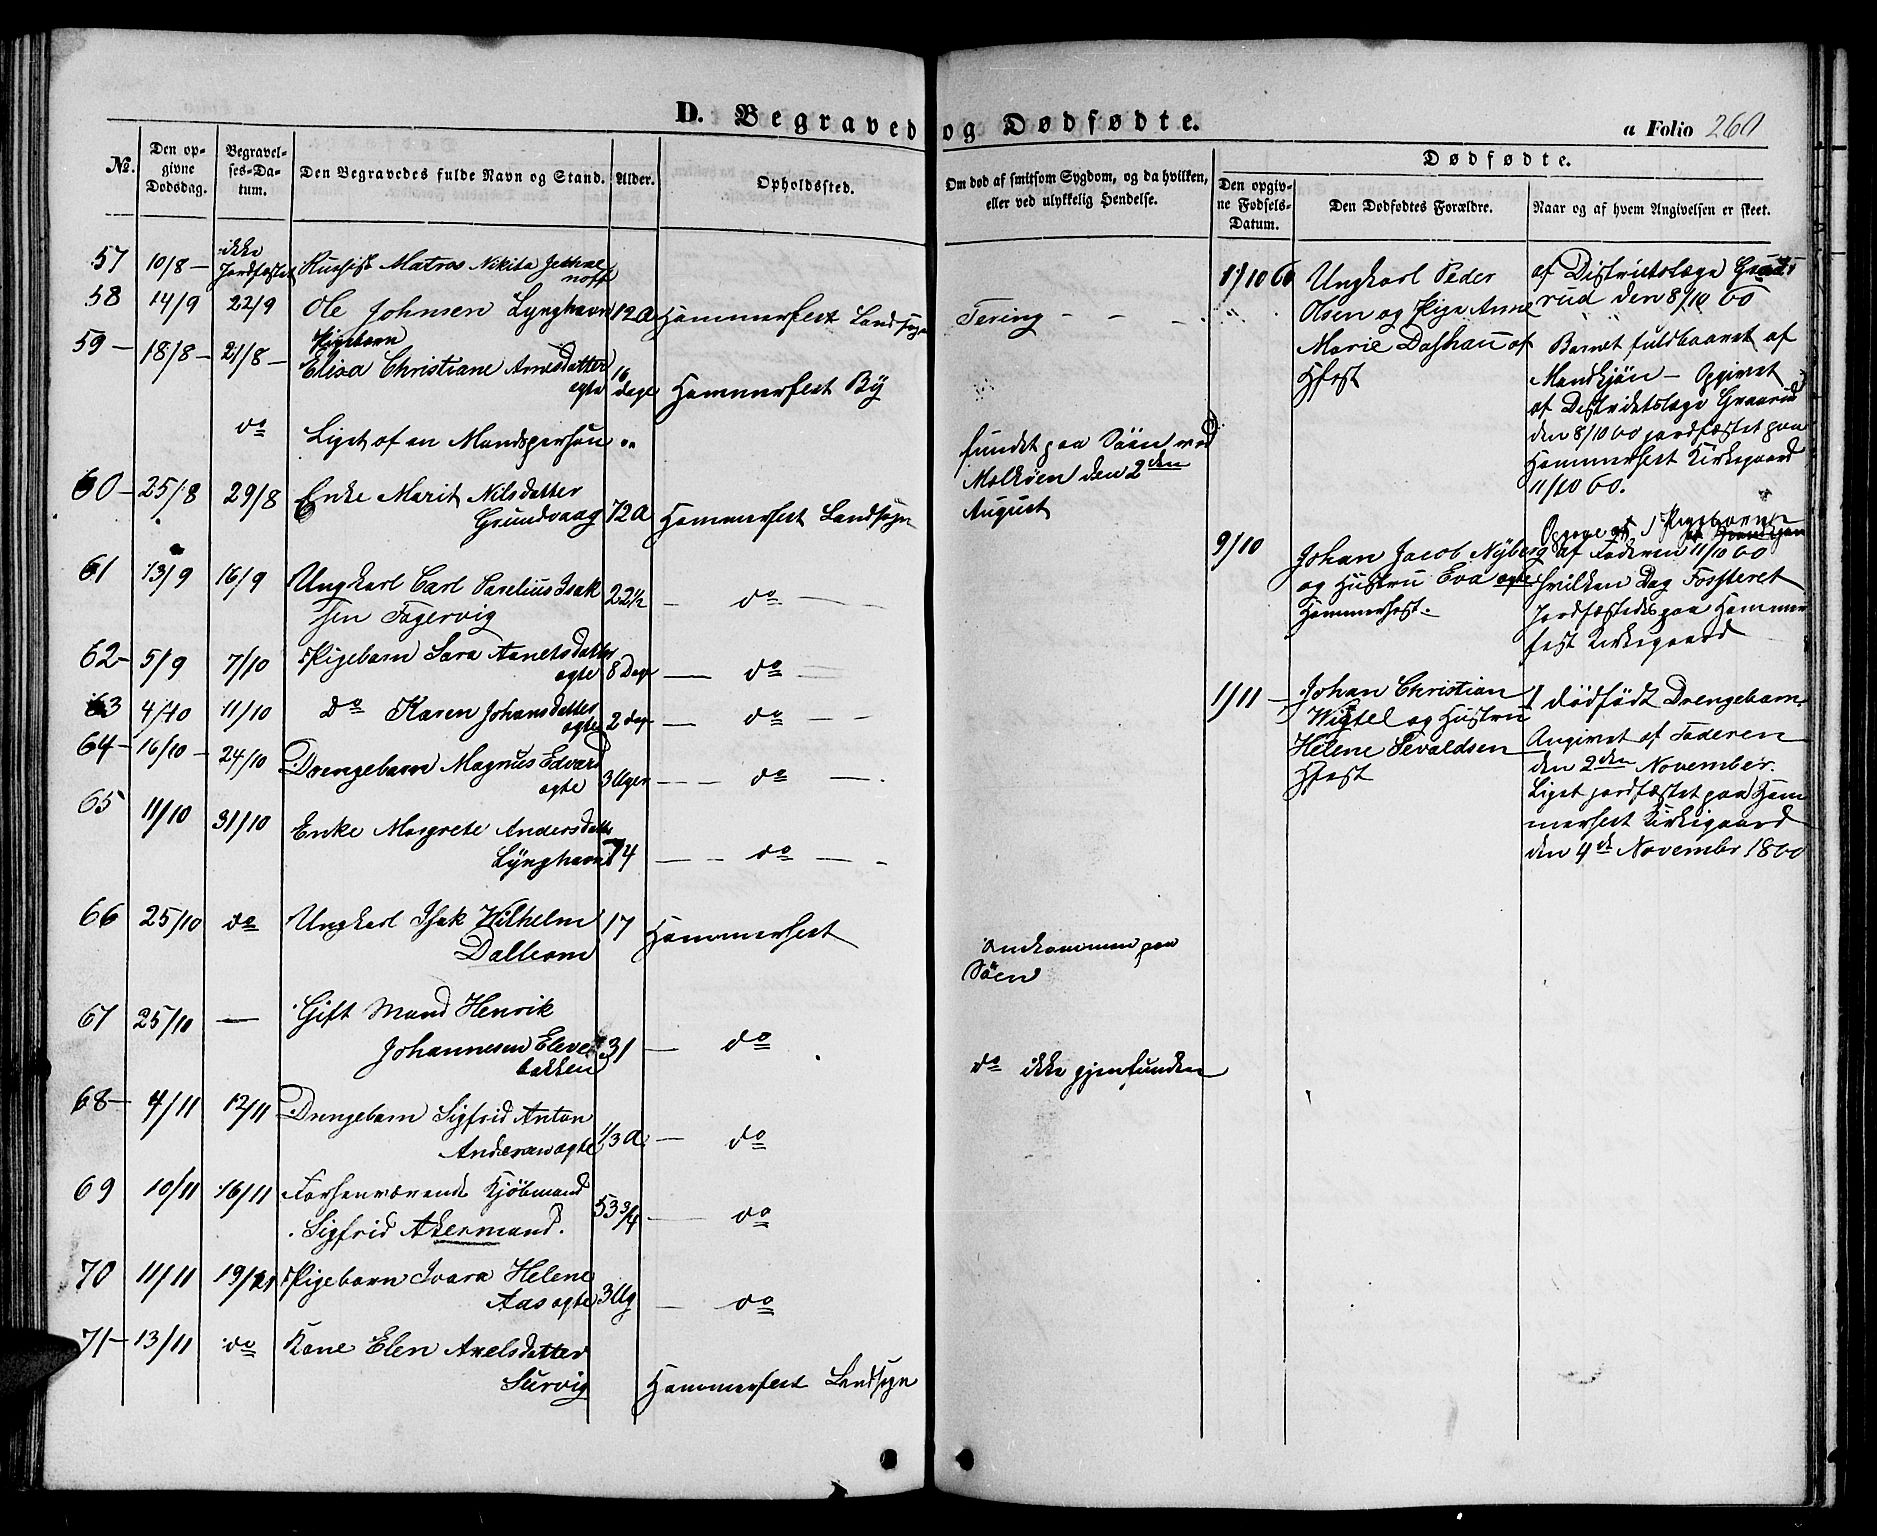 D. Begraved og Dødfødte.
a Folio 260
No.
Den op-
givne
Dødsdag.
Begravel-
ses-Da-
tum.
Den Begravedes fulde Navn og Stand.
Alder.
Opholdssted.
Om død af smitsom Sygdom, og da hvilken,
eller ved ulykkelig Hendelse.
Dødfødte.
Den opgiv-
ne Fødsels-
Datum.
Den Dødfødtes Forældre.
Naar og af hvem Angivelsen er skeet.
57 10/8 — ikke Jordfæstet Russisk Matros Nikita
noff
58 14/9 22/9 Ole Johnsen Lynghavn 12 A Hammerfest Landsogn Tering — — —
59 — 18/8 — 21/8 — Pigebarn
Elisa Christiane Arnesdatter
ægte 16 dage Hammerfest By
do Liget af en Mandsperson „ fundet paa Søen ved
Molkøen den 2den
August
60 — 25/8 29/8 Enke Marit Nilsdatter
Grundvaag 72 A Hammerfest Landsogn
61 13/9 16/9 Ungkarl Carl Parelius Isak
sen Fagervig 22½ — do — —
62 — 5/9 7/10 Pigebarn Sara Anetsdatter
ægte 8 Dage — do —
63 4/10 11/10 do Karen Johansdatter
ægte 2 dage — do — —
64 — 16/10 — 24/10 Drengebarn Magnus Edvard
ægte 3 Uger — — do —
65 11/10 31/10 Enke Margrete Andersdatter
Lynghavn 74 — — do — —
66 25/10 do Ungkarl Isak Wilhelm
Dalleom 17 Hammerfest omkommen paa
Søen
67 25/10 — Gift Mand Henrik
Johannesen Elve
bakken 31 — do do ikke gjenfunden
68 — 4/11 12/11 Drengebarn Sigfrid Anton
Andersen ægte 1/3 A — do
69 10/11 16/11 Forhenværende Kjøbmand
Sigfrid Akermand. 53 3/4 — do
70 11/11 19/11 Pigebarn Ivara Helene
Aas ægte 3 Ug — do
71 — 13/11 do Kone Elen Axelsdatter
Survig Hammerfest Landsogn
1/10 60 Ungkarl Peder
Olsen og Pige Anne
Marie Dashau af
Hfest
af Districtslæge Graa
rud den 8/10 60
Barnet fuldbaaret af
Mandkjøn — Opgivet
af Distriktslæge Graarud
den 8/10 60 jordfæstet paa
Hammerfest Kirkegaard
11/10 60.
9/10 Johan Jacob Nyberg
og Hustru Eva ægte
Hammerfest.
Pigebarn
af Faderen 11/10 60
hvilken Dag Fosteret
Jordfæstedes paa Hammer
fest Kirkegaard
1/11 — Johan Christian
Wigtel og Hustru
Helene Sevaldsen
Hfest
1 dødfødt Drengebarn.
Angivet af Faderen
den 2den November.
Liget jordfæstet paa Ham
merfest Kirkegaard
den 4de Novembr 1860